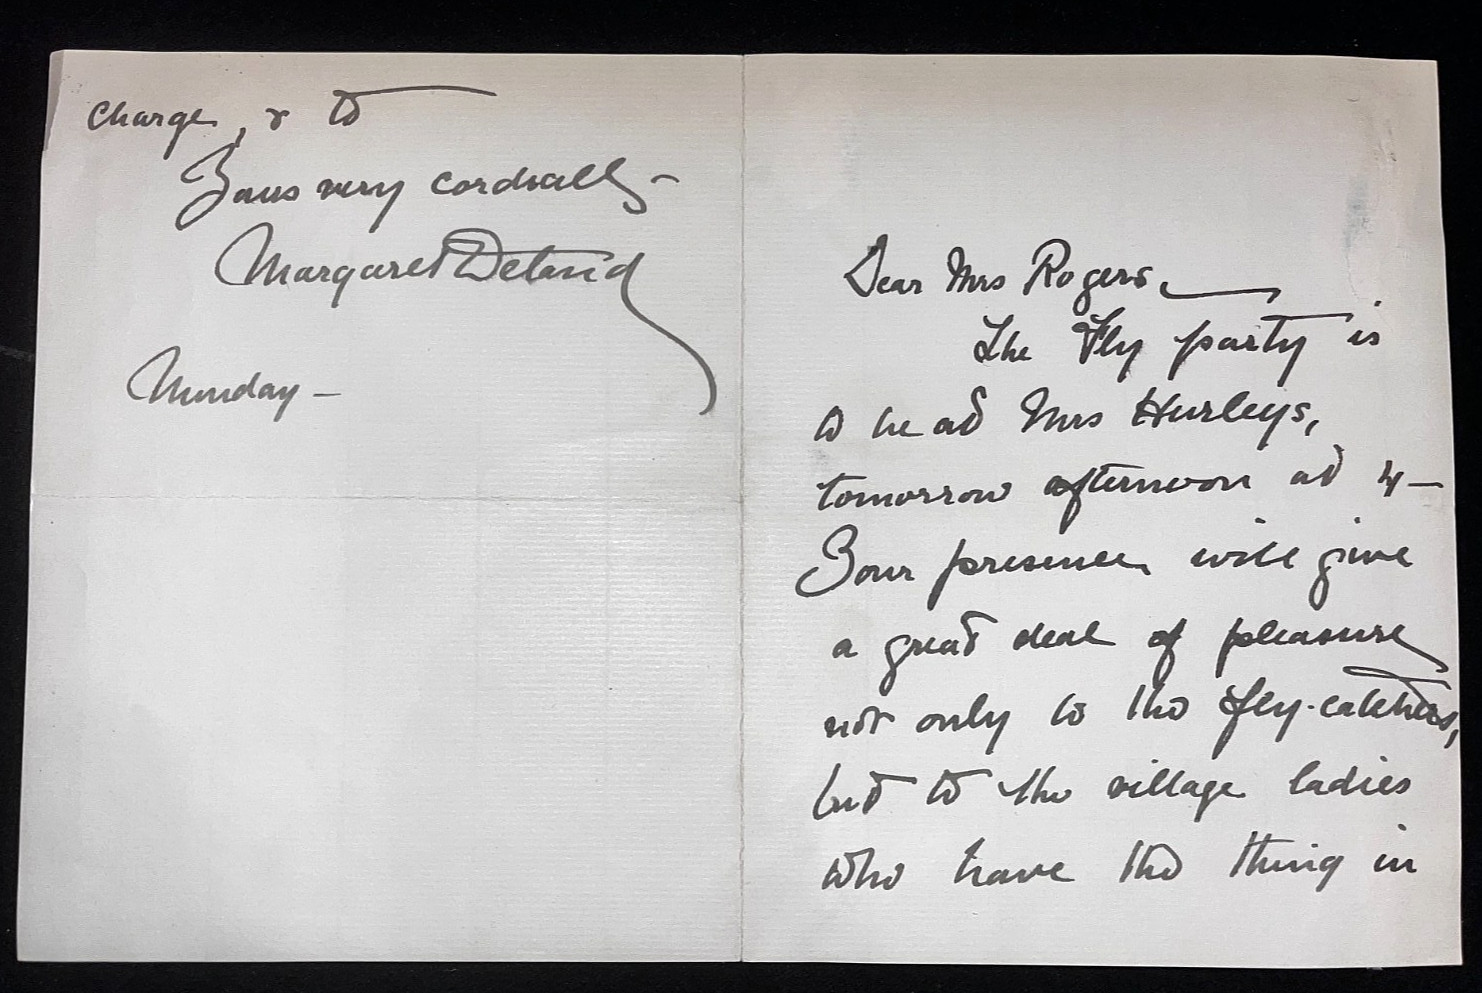 Dear Mrs Rogers,
The Fly party is
to be at Mrs Hurleys,
tomorrow afternoon at 4 —
Your presence, will give
a great deal of pleasure
not only to the fly-catchers,
but to the village ladies
who have the thing in
charge, & to
Yours very cordially —
Margaret Deland
Monday —